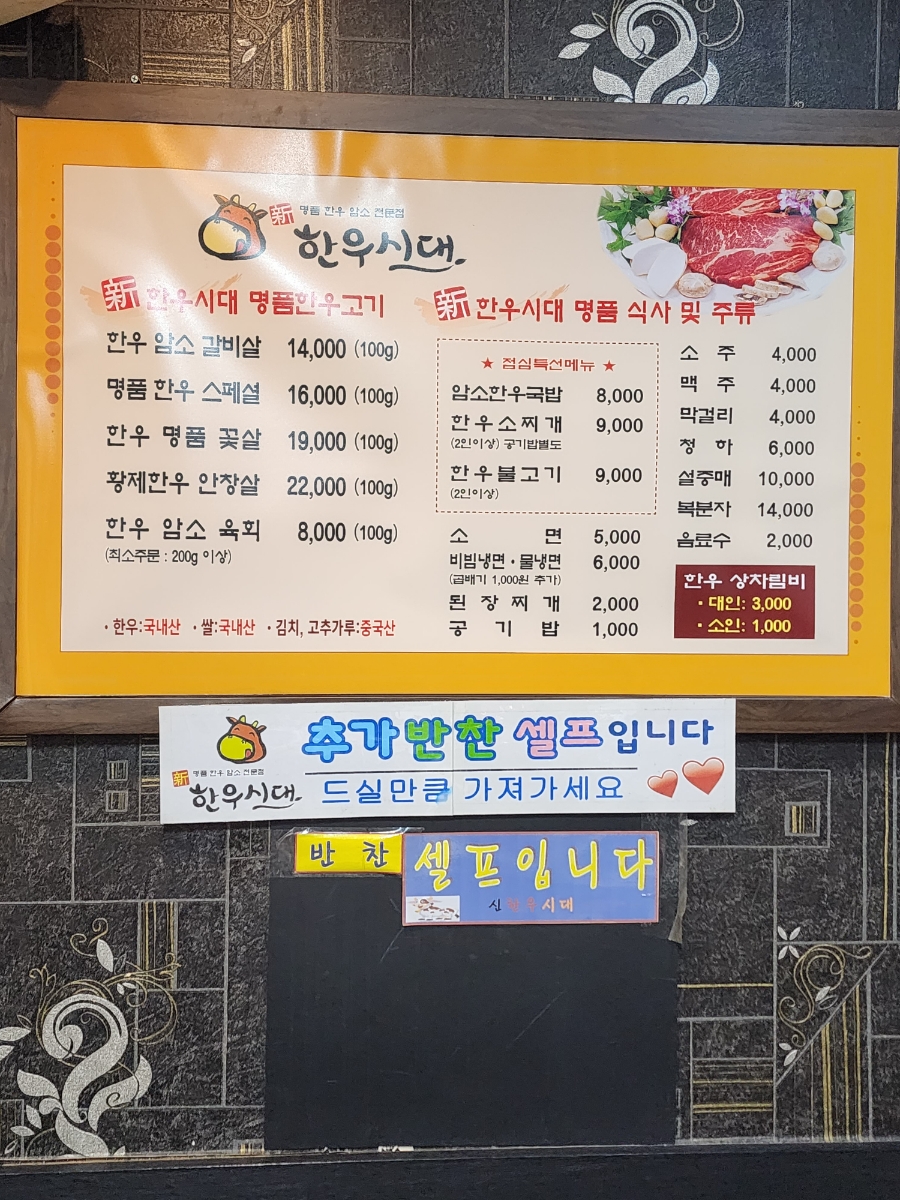 新 명품 한우 암소 전문점
한우시대
新 한우시대 명품한우고기
한우 암소 갈비살 14,000 (100g)
명품 한우 스페셜 16,000 (100g)
한우 명품 꽃살 19,000 (100g)
황제한우 안창살 22,000 (100g)
한우 암소 육회 8,000 (100g)
(최소주문 : 200g 이상)
• 한우:국내산 • 쌀:국내산 • 김치, 고추가루:중국산
新 한우시대 명품 식사 및 주류
★ 점심특선메뉴 ★
암소한우국밥 8,000
한우소찌개 9,000
(2인이상) 공기밥별도
한우불고기 9,000
(2인이상)
소 면 5,000
비빔냉면 • 물냉면 6,000
(곱배기 1,000원 추가)
된장찌개 2,000
공 기 밥 1,000
소 주 4,000
맥 주 4,000
막걸리 4,000
청 하 6,000
설중매 10,000
복분자 14,000
음료수 2,000
한우 상차림비
• 대인: 3,000
• 소인: 1,000
新 명품 한우 암소 전문점
한우시대
추가반찬 셀프입니다
드실만큼 가져가세요
반 찬
셀프입니다
신한우시대